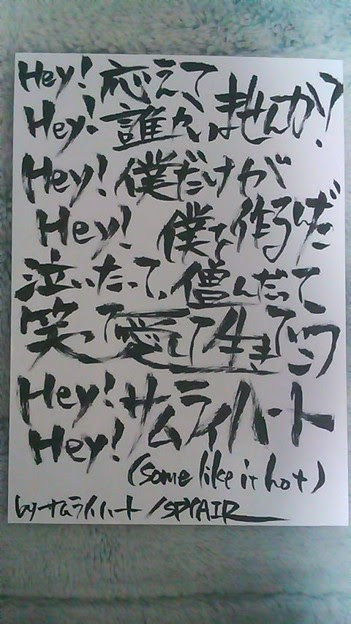 Hey! 応えて
Hey! 誰かいませんか?
Hey! 僕だけが
Hey! 僕を作るんだ
泣いたって、僧んだって
笑って愛して生きてこう
Hey! サムライハート
Hey!
(some like it hot)
サムライハート / SPYAIR